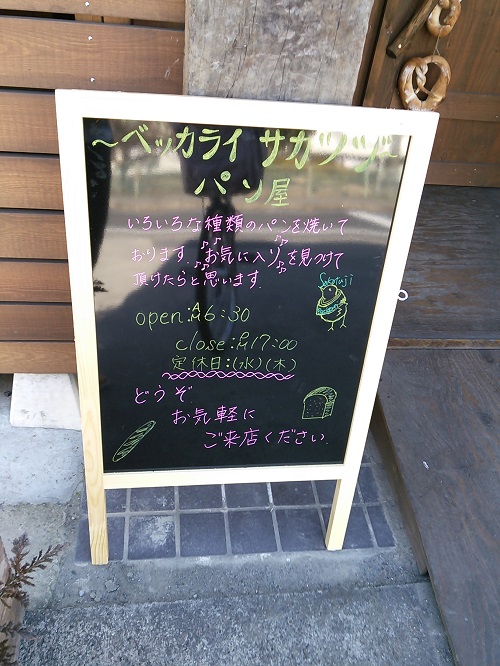 ～ベッカライ サカツジ～
パン屋
いろいろな種類のパンを焼いて
おります♪♪お気に入り♪♪を見つけて
頂けたらと思います.
Sakatuji
open:AM6:30
close:PM17:00
定休日:(水)(木)
どうぞ
お気軽に
ご来店ください.